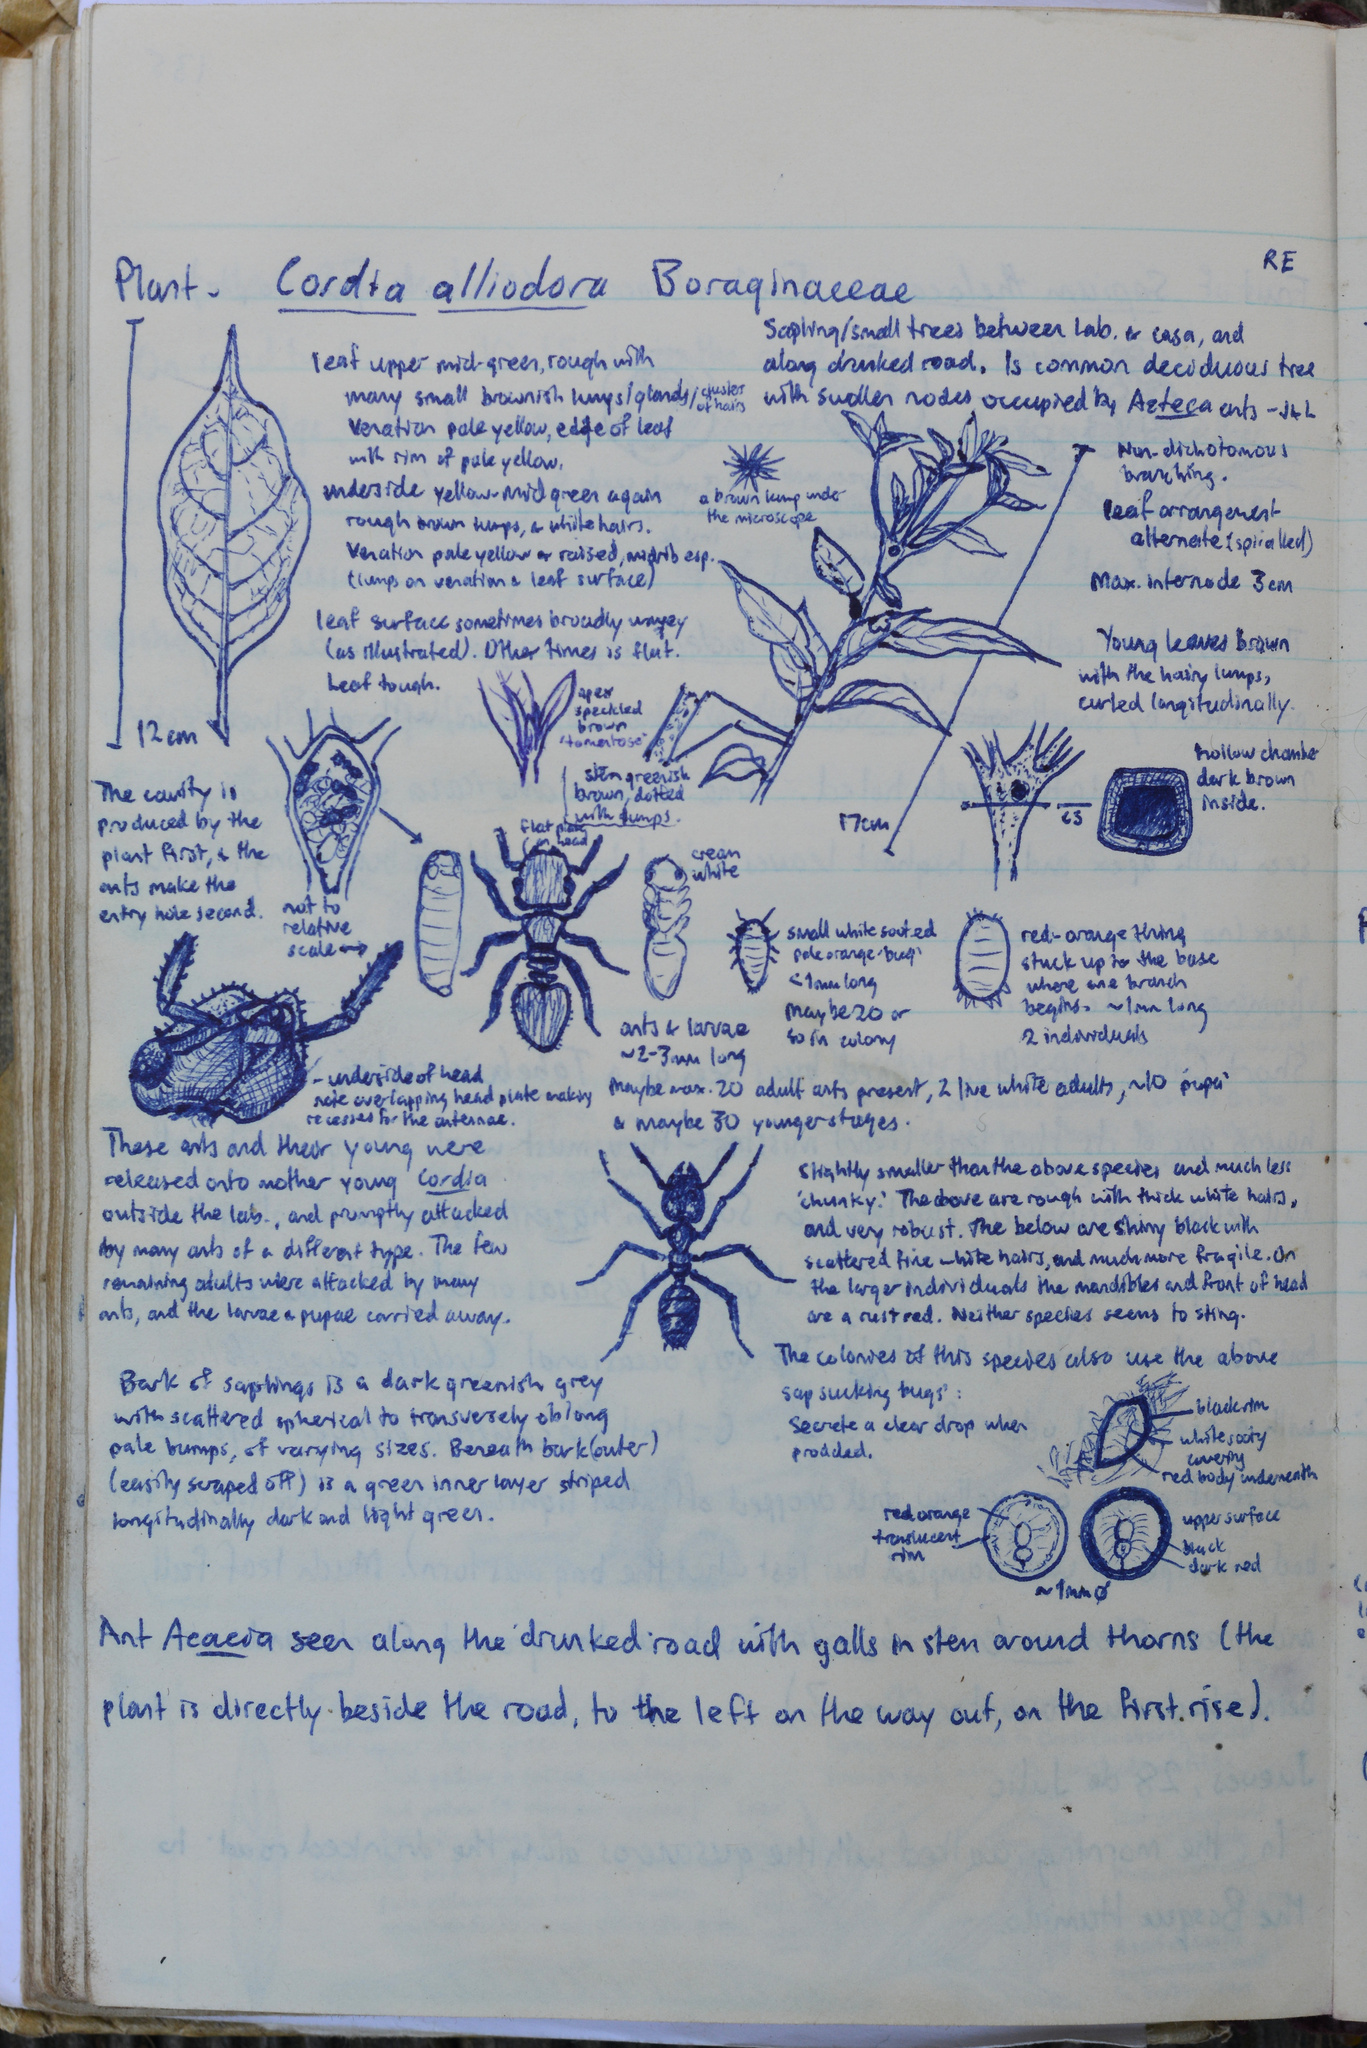 RE
Plant. Cordia alliodora Boraginaceae
Sapling/small trees between lab. & casa, and
along drunked road. Is common deciduous tree
with swollen nodes occupied by Azteca ants - J+L
leaf upper mid-green, rough with
many small brownish lumps/glands/cluster
of hairs
Venation pale yellow, edge of leaf
with rim of pale yellow.
underside yellow-mid green again
rough brown lumps, & white hairs.
Venation pale yellow & raised, midrib esp.
(lumps on venation & leaf surface)
leaf surface sometimes broadly wavey
(as illustrated). Other times is flat.
Leaf tough.
12cm
a brown lump under
the microscope
Non-dichotomous
branching.
Leaf arrangement
alternate (spiralled)
Max. internode 3cm
Young leaves brown
with the hairy lumps,
curled longitudinally.
17cm
apex
speckled
brown
'tomentose'
stem greenish
brown, dotted
with lumps.
hollow chamber
dark brown
inside.
The cavity is
produced by the
plant first, & the
ants make the
entry hole second.
not to
relative
scale
flat plate
on head
cream
white
small white sooted
pale orange 'bug'
<1mm long
Maybe 20 or
so in colony
red-orange thing
stuck up to the base
where one branch
begins. ~1mm long
2 individuals
ants & larvae
~2-3mm long
Maybe max. 20 adult ants present, 2 live white adults, ~10 'pupa'
& maybe 30 younger stages.
- underside of head
note overlapping head plate making
recesses for the antennae.
These ants and their young were
released onto another young Cordia
outside the lab., and promptly attacked
by many ants of a different type. The few
remaining adults were attacked by many
ants, and the larvae & pupae carried away.
Slightly smaller than the above species and much less
'chunky'. The above are rough with thick white hairs,
and very robust. The below are shiny black with
scattered fine white hairs, and much more fragile. On
the larger individuals the mandibles and front of head
are a rust red. Neither species seems to sting.
The colonies of this species also use the above
sap sucking 'bugs':
Secrete a clear drop when
prodded.
black rim
white sooty
covering
red body underneath
red orange
translucent
rim
upper surface
black
dark red
~1mm ø
Bark of saplings is a dark greenish grey
with scattered spherical to transversely oblong
pale bumps, of varying sizes. Beneath bark (outer)
(easily scraped off) is a green inner layer striped
longitudinally dark and light green.
Ant Acacia seen along the drunked road with galls in stem around thorns (the
plant is directly beside the road, to the left on the way out, on the first rise).